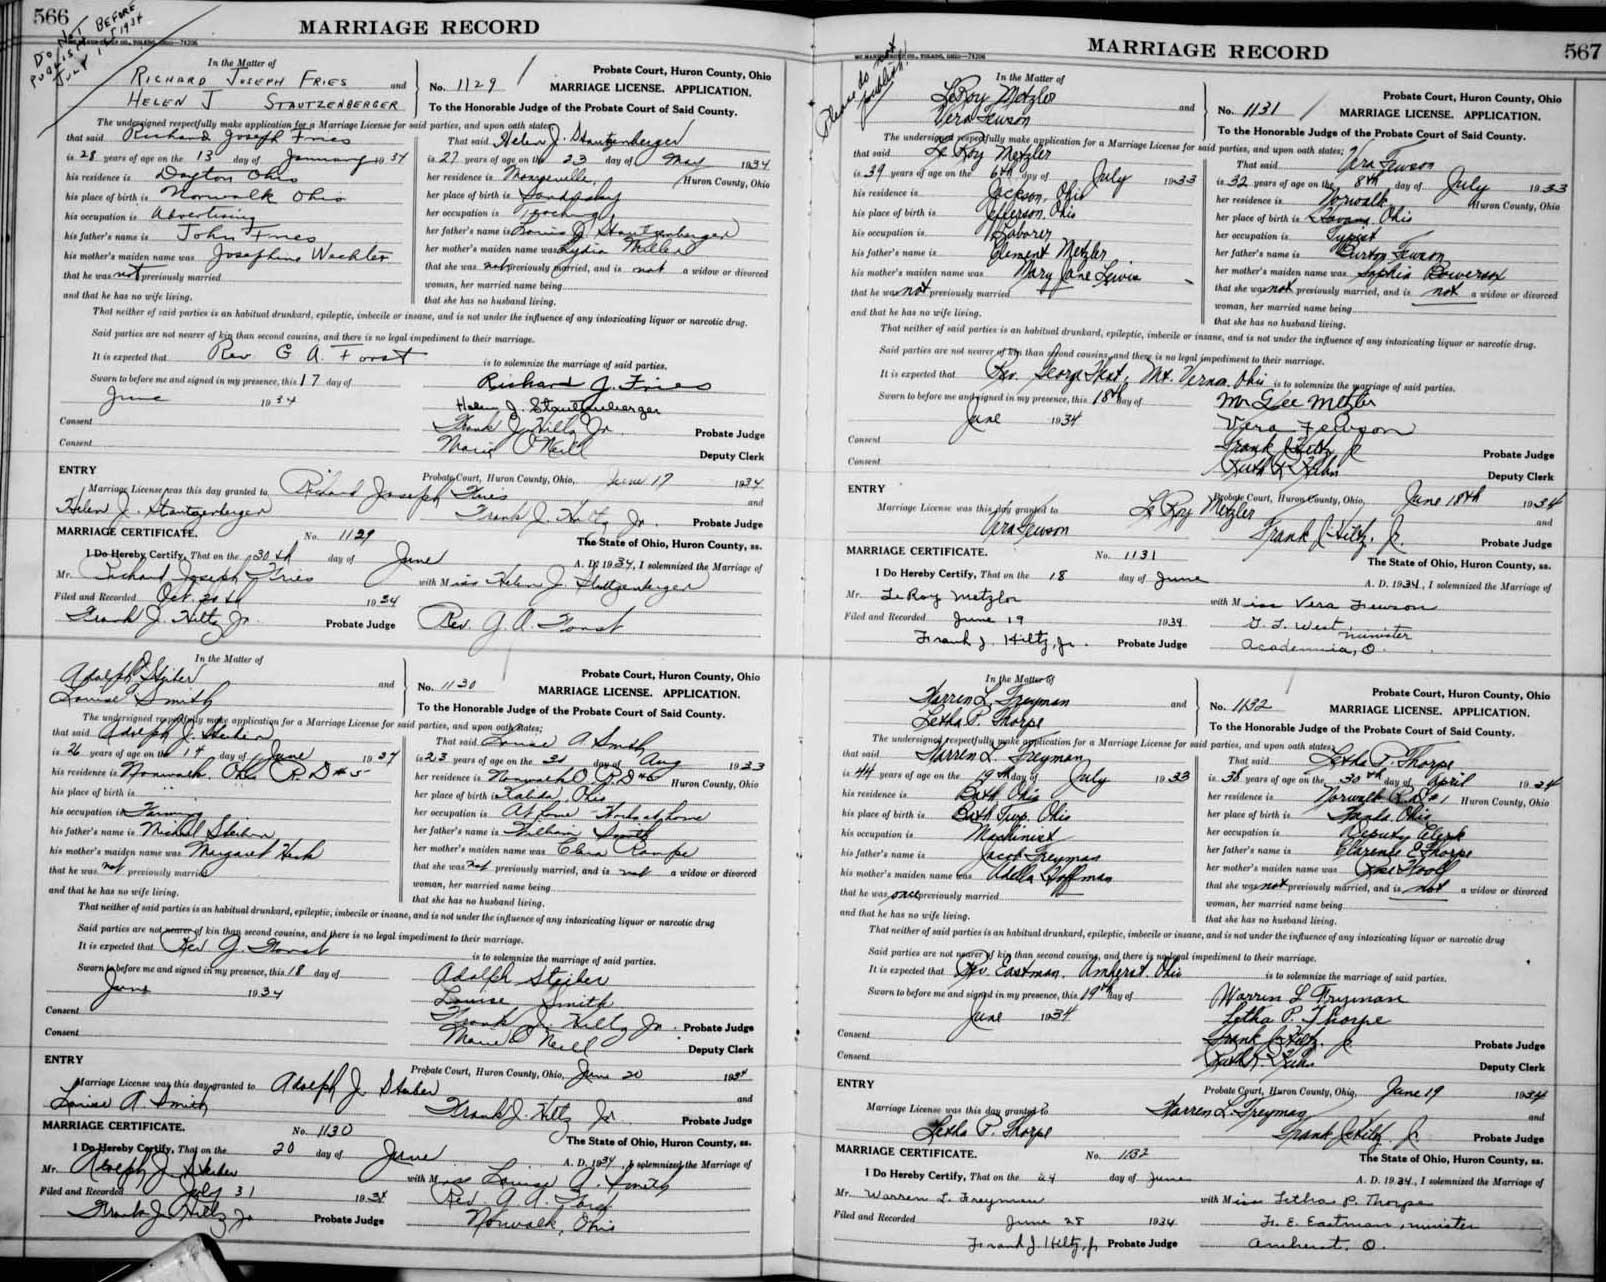 566
MARRIAGE RECORD
DO NOT PUBLISH BEFORE JULY 1st 1934
In the Matter of
RICHARD JOSEPH FRIES and
HELEN J STAUTZENBERGER
No. 1129
Probate Court, Huron County, Ohio
MARRIAGE LICENSE. APPLICATION.
To the Honorable Judge of the Probate Court of Said County.
The undersigned respectfully make application for a Marriage License for said parties, and upon oath states;
that said Richard Joseph Fries
is 28 years of age on the 13 day of January 1934
his residence is Dayton Ohio
his place of birth is Norwalk Ohio
his occupation is Advertising
his father's name is John Fries
his mother's maiden name was Josephine Wechter
that he was not previously married
and that he has no wife living.
That said Helen J. Stautzenberger
is 27 years of age on the 23 day of May 1934
her residence is Monroeville, Huron County, Ohio
her place of birth is Sandusky
her occupation is Teaching
her father's name is J. Stautzenberger
her mother's maiden name was Lydia Miller
that she was not previously married, and is not a widow or divorced
woman, her married name being
that she has no husband living.
That neither of said parties is an habitual drunkard, epileptic, imbecile or insane, and is not under the influence of any intoxicating liquor or narcotic drug.
Said parties are not nearer of kin than second cousins, and there is no legal impediment to their marriage.
It is expected that Rev G A. Forst is to solemnize the marriage of said parties.
Sworn to before me and signed in my presence, this 17 day of
June 1934
Richard J. Fries
Helen J. Stautzenberger
Consent Frank J. Hiltz Jr. Probate Judge
Consent Marie O'Neill Deputy Clerk
ENTRY
Probate Court, Huron County, Ohio, June 17 1934
Marriage License was this day granted to Richard Joseph Fries and
Helen J. Stautzenberger Frank J. Hiltz Jr. Probate Judge
MARRIAGE CERTIFICATE. No. 1129 The State of Ohio, Huron County, ss.
I Do Hereby Certify, That on the 30th day of June A. D. 1934, I solemnized the Marriage of
Mr. Richard Joseph Fries with Miss Helen J. Stutzenberger
Filed and Recorded Oct. 20th 1934
Frank J. Hiltz Jr. Probate Judge Rev. G. A. Forst
In the Matter of
Adolph Steiber and
Louise Smith
No. 1130
Probate Court, Huron County, Ohio
MARRIAGE LICENSE. APPLICATION.
To the Honorable Judge of the Probate Court of Said County.
The undersigned respectfully make application for a Marriage License for said parties, and upon oath states;
that said Adolph J. Steiber
is 26 years of age on the 14 day of June 1934
his residence is Norwalk, Ohio R.D #5
his place of birth is " "
his occupation is Farmer
his father's name is Steiber
his mother's maiden name was Margaret
that he was not previously married
and that he has no wife living.
That said Louise A Smith
is 23 years of age on the day of Aug 1933
her residence is Norwalk O R.D Huron County, Ohio
her place of birth is Kalida, Ohio
her occupation is At home
her father's name is William Smith
her mother's maiden name was Clara Rampe
that she was not previously married, and is not a widow or divorced
woman, her married name being
that she has no husband living.
That neither of said parties is an habitual drunkard, epileptic, imbecile or insane, and is not under the influence of any intoxicating liquor or narcotic drug
Said parties are not nearer of kin than second cousins, and there is no legal impediment to their marriage.
It is expected that Rev G. Forst is to solemnize the marriage of said parties.
Sworn to before me and signed in my presence, this 18 day of
June 1934
Adolph Steiber
Louise Smith
Consent Frank J. Hiltz Jr. Probate Judge
Consent Marie O'Neill Deputy Clerk
ENTRY
Probate Court, Huron County, Ohio, June 20 1934
Marriage License was this day granted to Adolph J. Steiber and
Louise A. Smith Frank J. Hiltz Jr Probate Judge
MARRIAGE CERTIFICATE. No. 1130 The State of Ohio, Huron County, ss.
I Do Hereby Certify, That on the 20 day of June A. D. 1934, I solemnized the Marriage of
Mr. Adolph J. Steiber with Miss Louise A. Smith
Filed and Recorded July 31 1934 Rev. G. A. Forst
Frank J. Hiltz Jr Probate Judge Norwalk, Ohio
567
MARRIAGE RECORD
Please do not publish!
In the Matter of
LeRoy Metzler and
Vera Fewson
No. 1131
Probate Court, Huron County, Ohio
MARRIAGE LICENSE. APPLICATION.
To the Honorable Judge of the Probate Court of Said County.
The undersigned respectfully make application for a Marriage License for said parties, and upon oath states;
that said Le Roy Metzler
is 39 years of age on the 6th day of July 1933
his residence is Jackson, Ohio
his place of birth is Jefferson, Ohio
his occupation is Laborer
his father's name is Clement Metzler
his mother's maiden name was Mary Jane Lewis
that he was not previously married
and that he has no wife living.
That said Vera Fewson
is 32 years of age on the 8th day of July 1933
her residence is Norwalk Huron County, Ohio
her place of birth is Havana, Ohio
her occupation is Typist
her father's name is Burton Fewson
her mother's maiden name was Sophia Bowersox
that she was not previously married, and is not a widow or divorced
woman, her married name being
that she has no husband living.
That neither of said parties is an habitual drunkard, epileptic, imbecile or insane, and is not under the influence of any intoxicating liquor or narcotic drug.
Said parties are not nearer of kin than second cousins, and there is no legal impediment to their marriage.
It is expected that Rev. George West, Mt. Vernon, Ohio is to solemnize the marriage of said parties.
Sworn to before me and signed in my presence, this 18th day of
June 1934
Metzler
Vera Fewson
Consent Frank J. Hiltz Jr Probate Judge
Consent Ruth R. Hahn Deputy Clerk
ENTRY
Probate Court, Huron County, Ohio, June 18th 1934
Marriage License was this day granted to Le Roy Metzler and
Vera Fewson Frank J. Hiltz, Jr. Probate Judge
MARRIAGE CERTIFICATE. No. 1131 The State of Ohio, Huron County, ss.
I Do Hereby Certify, That on the 18 day of June A. D. 1934, I solemnized the Marriage of
Mr. LeRoy Metzler with Miss Vera Fewson
Filed and Recorded June 19 1934 G. F. West, minister
Frank J. Hiltz, Jr. Probate Judge Academia, O.
In the Matter of
Warren L. Freyman and
Letha P. Thorpe
No. 1132
Probate Court, Huron County, Ohio
MARRIAGE LICENSE. APPLICATION.
To the Honorable Judge of the Probate Court of Said County.
The undersigned respectfully make application for a Marriage License for said parties, and upon oath states;
that said Warren L. Freyman
is 44 years of age on the 19th day of July 1933
his residence is Bath, Ohio
his place of birth is Bath Twp. Ohio
his occupation is Machinist
his father's name is Jacob Freyman
his mother's maiden name was Adella Hoffman
that he was once previously married
and that he has no wife living.
That said Letha P. Thorpe
is 38 years of age on the 30th day of April 1934
her residence is Norwalk R.D #1 Huron County, Ohio
her place of birth is Ohio
her occupation is Deputy Clerk
her father's name is Clarence E Thorpe
her mother's maiden name was Rose Woolf
that she was not previously married, and is not a widow or divorced
woman, her married name being
that she has no husband living.
That neither of said parties is an habitual drunkard, epileptic, imbecile or insane, and is not under the influence of any intoxicating liquor or narcotic drug
Said parties are not nearer of kin than second cousins, and there is no legal impediment to their marriage.
It is expected that Rev. Eastman, Amherst, Ohio is to solemnize the marriage of said parties.
Sworn to before me and signed in my presence, this 19th day of
June 1934
Warren L Fryman
Letha P. Thorpe
Consent Frank J. Hiltz, Jr Probate Judge
Consent Ruth R. Hahn Deputy Clerk
ENTRY
Probate Court, Huron County, Ohio, June 19 1934
Marriage License was this day granted to Warren L. Freyman and
Letha P. Thorpe Frank J. Hiltz Jr. Probate Judge
MARRIAGE CERTIFICATE. No. 1132 The State of Ohio, Huron County, ss.
I Do Hereby Certify, That on the 24 day of June A. D. 1934, I solemnized the Marriage of
Mr. Warren L. Freyman with Miss Letha P. Thorpe
Filed and Recorded June 28 1934 H. E. Eastman, minister
Frank J. Hiltz, Jr Probate Judge Amherst, O.